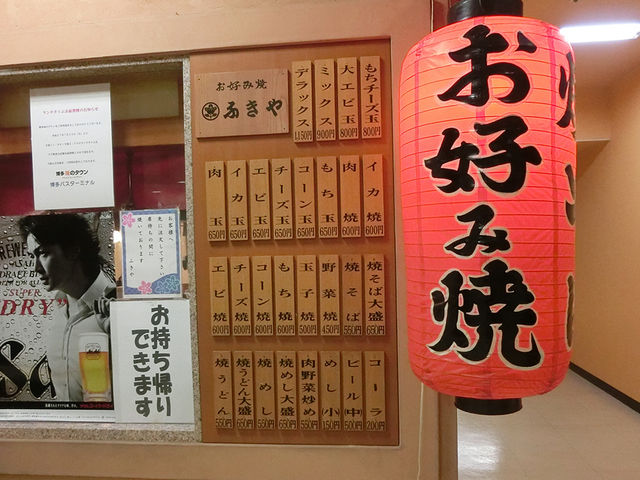 お好み焼
ふきや
もちチーズ玉 800円
大エビ玉 800円
ミックス 900円
デラックス 1150円
イカ焼 600円
肉焼 600円
もち玉 650円
コーン玉 650円
チーズ玉 650円
エビ玉 650円
イカ玉 650円
肉玉 650円
焼そば大盛 650円
焼そば 550円
野菜焼 450円
玉子焼 500円
もち焼 600円
コーン焼 600円
チーズ焼 600円
エビ焼 600円
コーラ 200円
ビール(中) 500円
めし(小) 150円
肉野菜炒め 550円
焼めし大盛 650円
焼めし 550円
焼うどん大盛 650円
焼うどん 550円
お好み焼
博多バスターミナル
お客様へ
先に注文して下さい
お待ちの間に
焼いております
ふきや
お持ち帰り
できます
ASAHI
"SUPER
DRY"